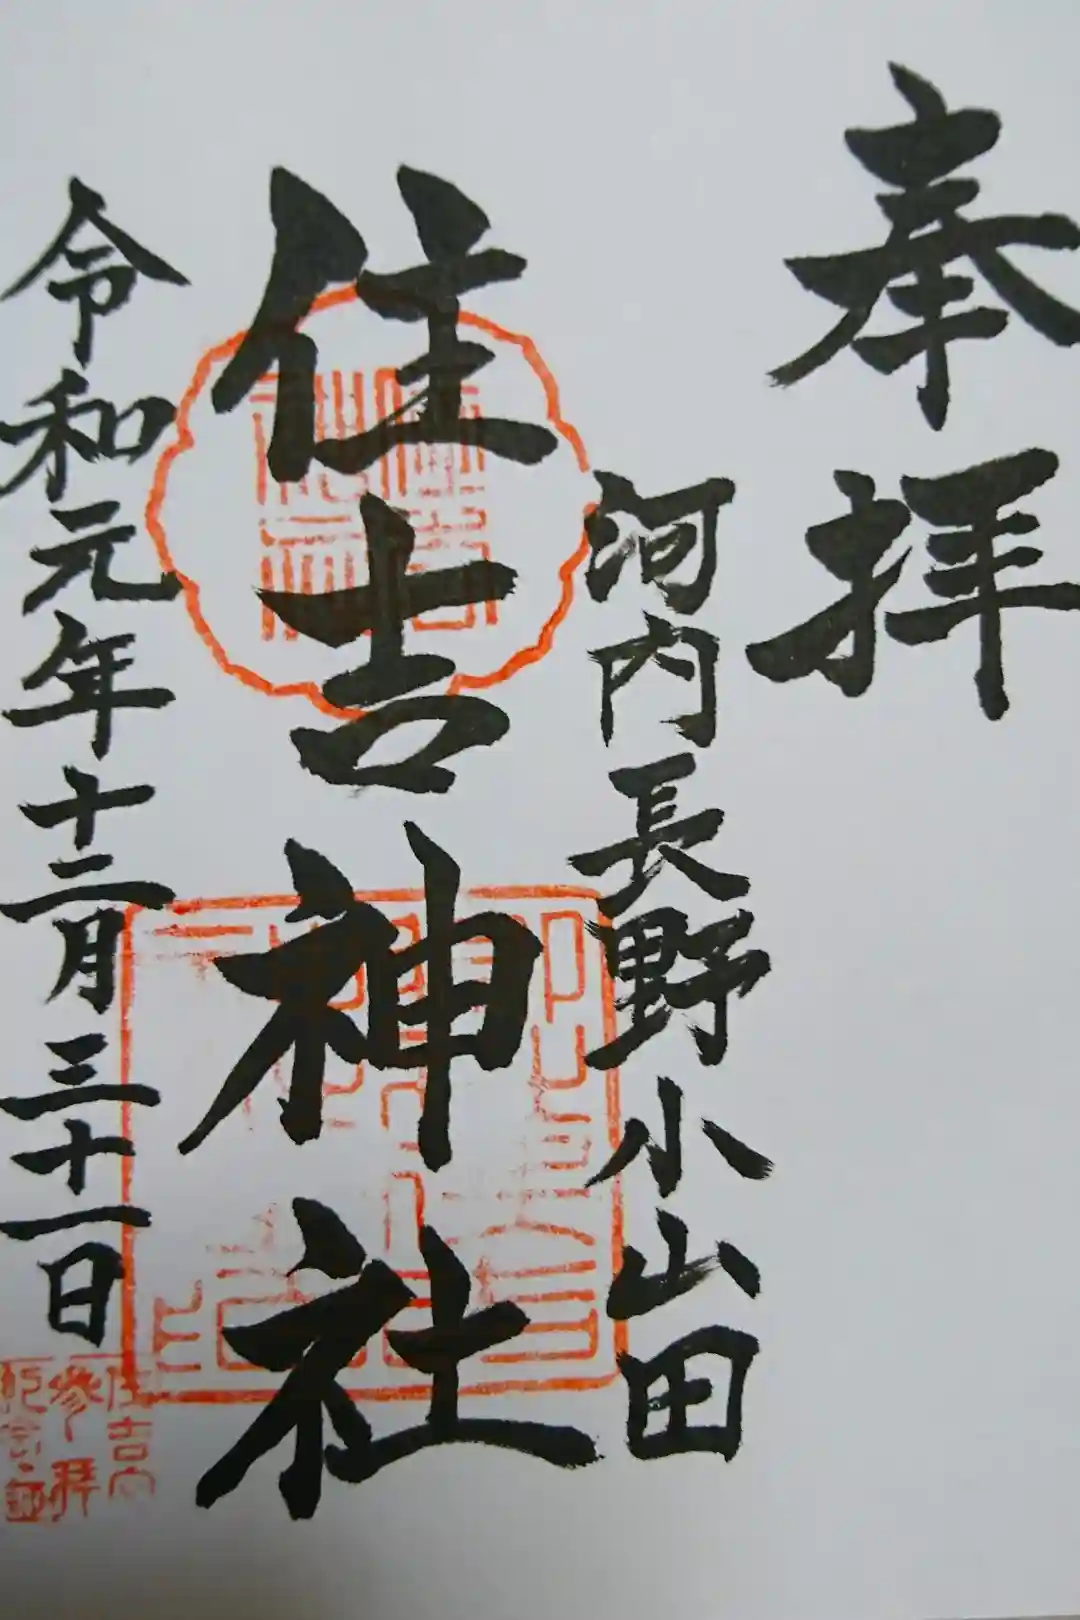 奉拝
河内長野小山田
住吉神社
令和元年十二月三十一日
住吉
参拝
記念